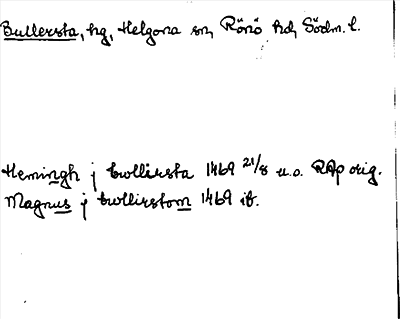 Bullersta, hg, Helgona sn, Rönö hd, Södm. l.
Hemingh j bwllirsta 1469 21/8 u.o. RAp orig.
Magnus j bwllirstom 1469 ib.